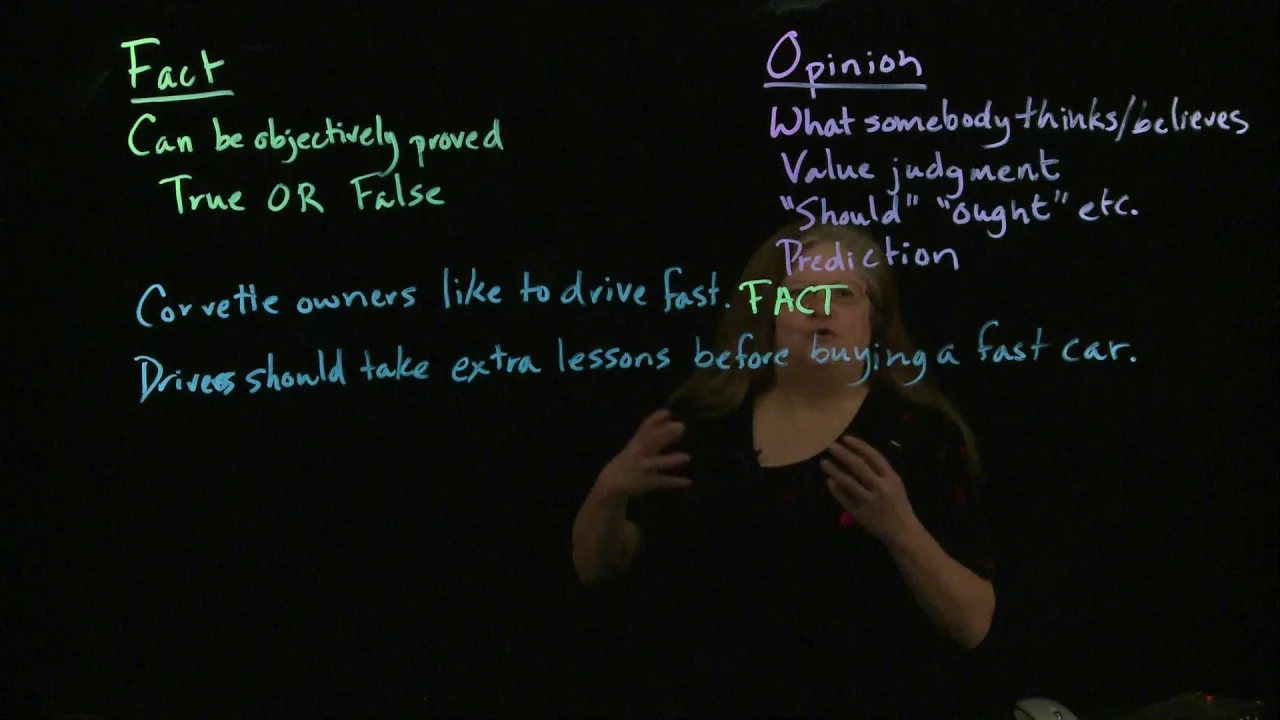 Fact
Can be objectively proved
True OR False
Opinion
What somebody thinks/believes
Value judgment
"Should" "ought" etc.
Prediction
Corvette owners like to drive fast. FACT
Drivers should take extra lessons before buying a fast car.